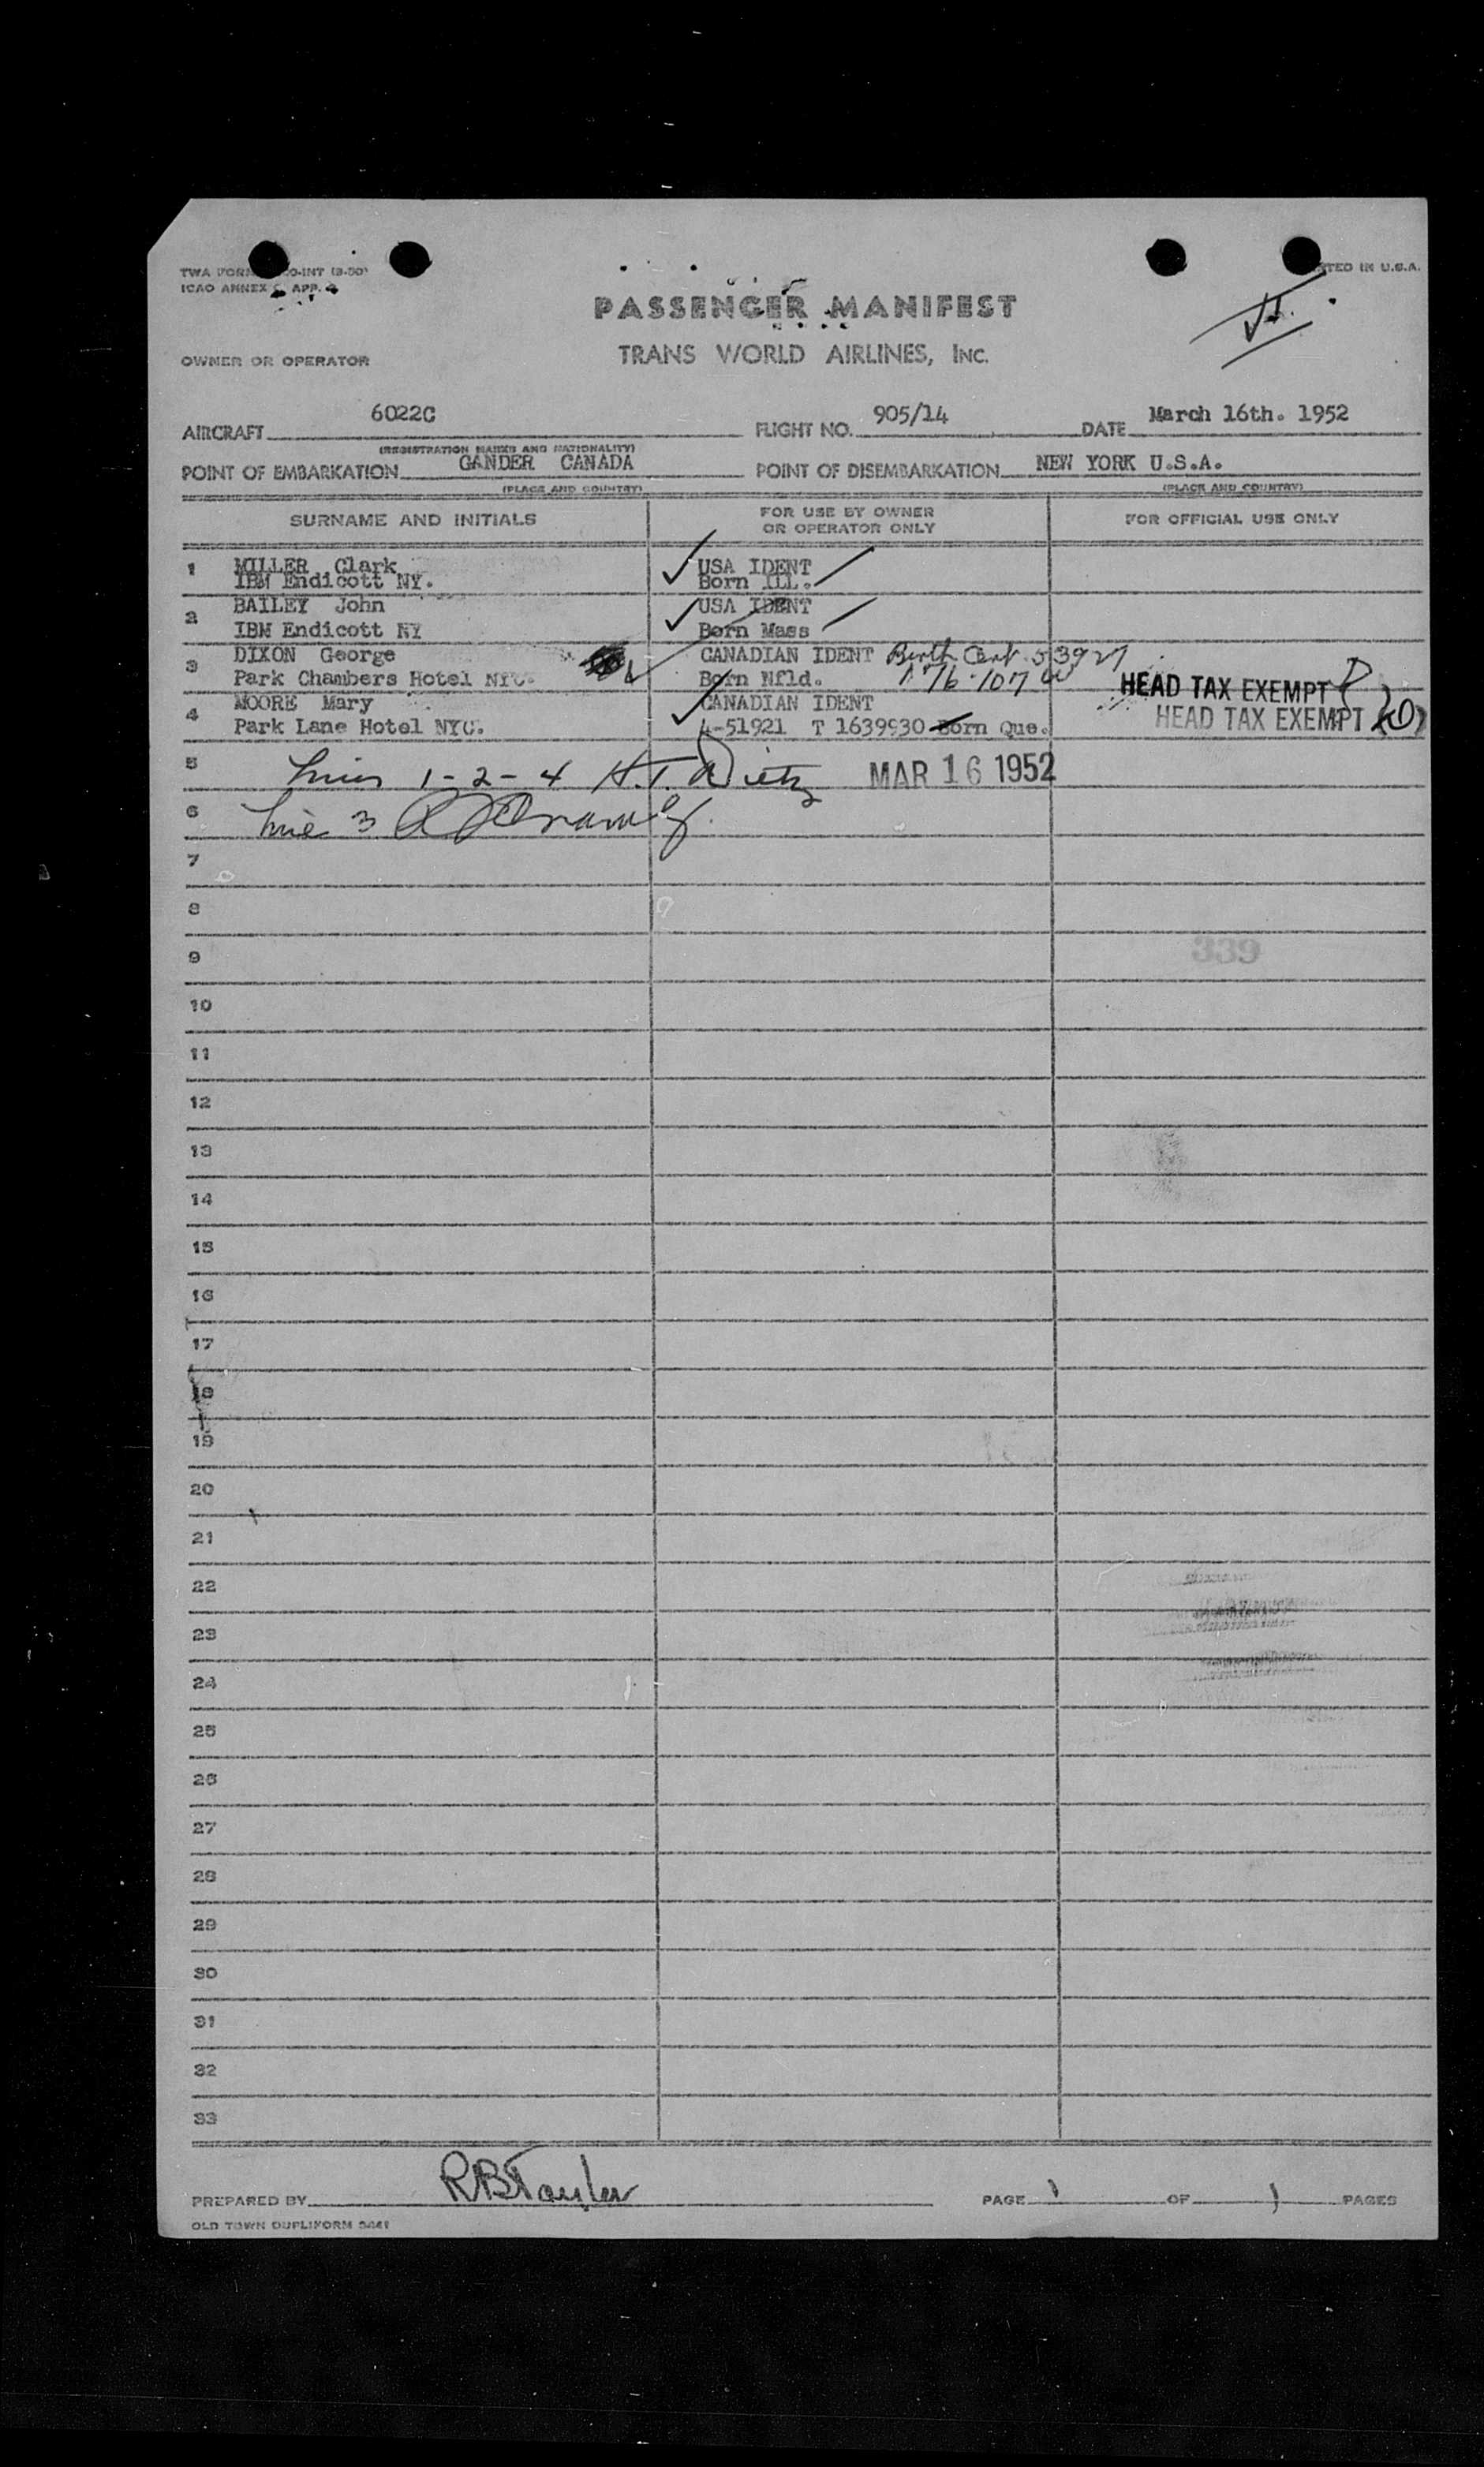 PRINTED IN U.S.A.
ICAO ANNEX
PASSENGER MANIFEST
OWNER OR OPERATOR TRANS WORLD AIRLINES, INC.
AIRCRAFT 6022C FLIGHT NO. 905/14 DATE March 16th. 1952
(REGISTRATION MARKS AND NATIONALITY)
POINT OF EMBARKATION GANDER CANADA POINT OF DISEMBARKATION NEW YORK U.S.A.
(PLACE AND COUNTRY) (PLACE AND COUNTRY)
SURNAME AND INITIALS FOR USE BY OWNER OR OPERATOR ONLY FOR OFFICIAL USE ONLY
1 MILLER Clark USA IDENT
IBM Endicott NY. Born ILL.
2 BAILEY John USA IDENT
IBM Endicott NY Born Mass
3 DIXON George CANADIAN IDENT Birth Cert 53927
Park Chambers Hotel NYC. Born Nfld. HEAD TAX EXEMPT
4 MOORE Mary CANADIAN IDENT
Park Lane Hotel NYC. 4-51921 T 1639930 Born Que. HEAD TAX EXEMPT
5 Lines 1-2-4 H.T. Dietz MAR 16 1952
6 Line 3
7
8
9 339
10
11
12
13
14
15
16
17
18
19
20
21
22
23
24
25
26
27
28
29
30
31
32
33
PREPARED BY RB Taylor PAGE 1 OF 1 PAGES
OLD TOWN DUPLIFORM